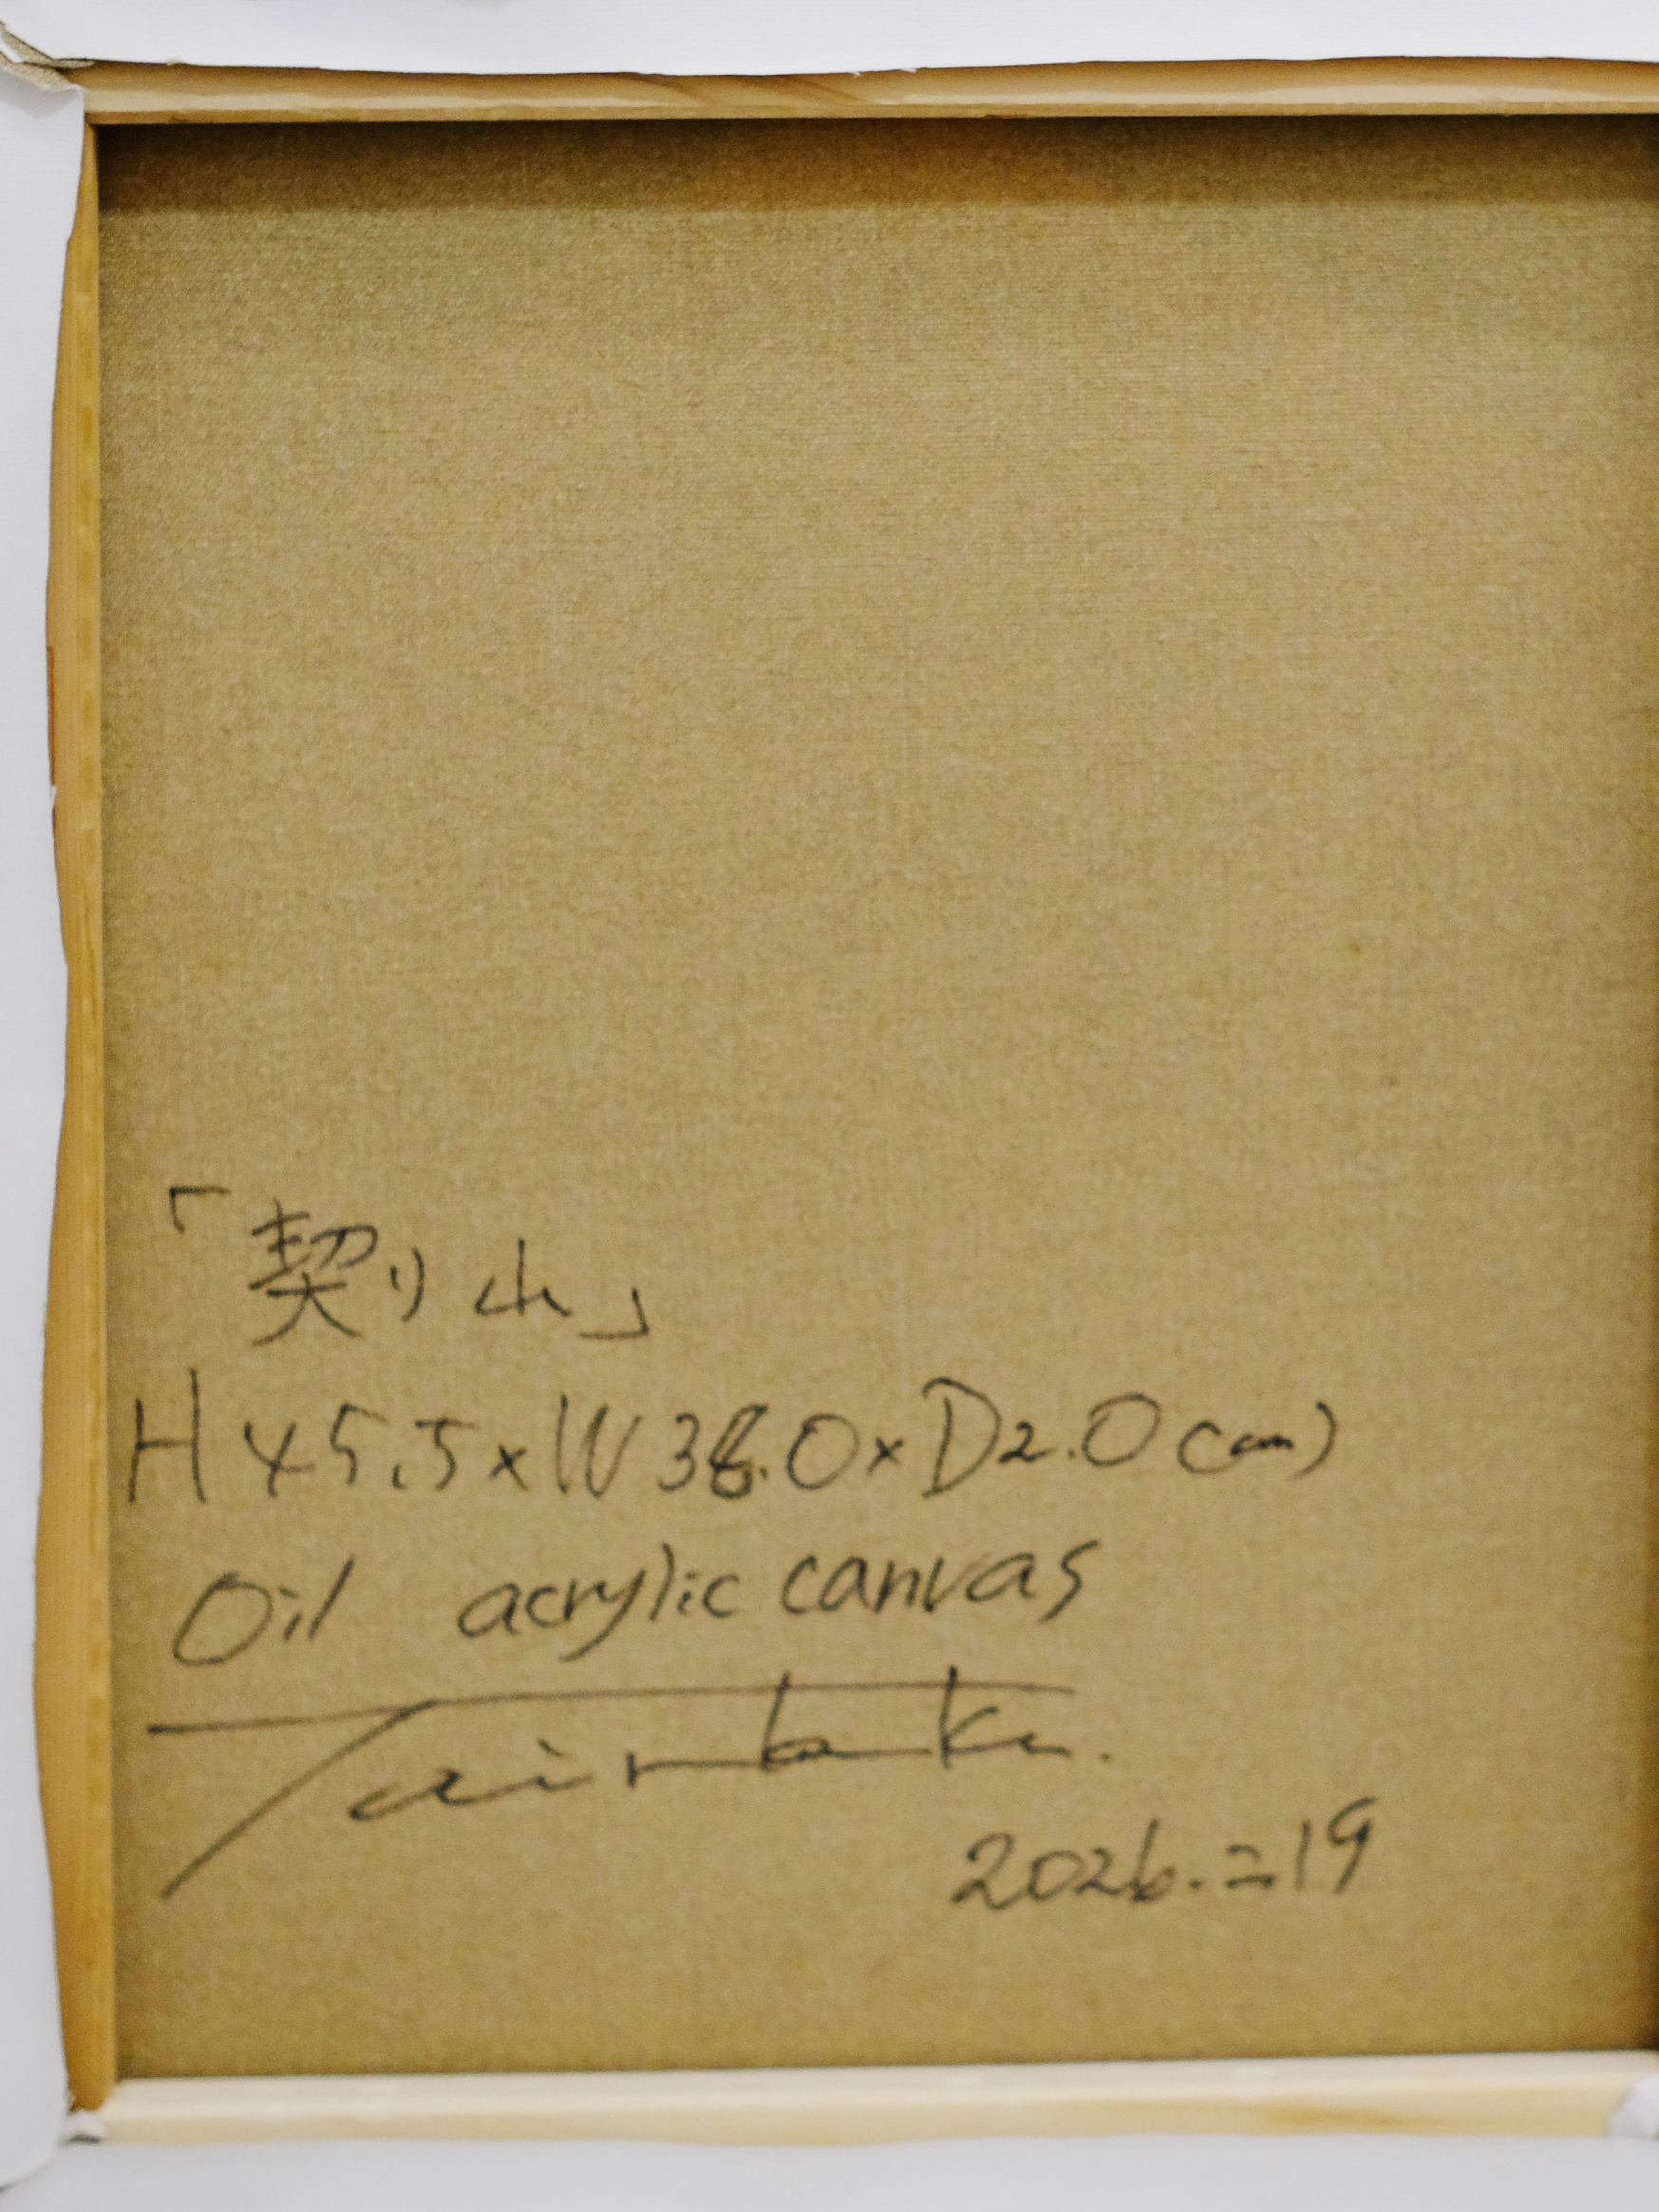 「契り山」
H45.5×W38.0×D2.0(cm)
Oil acrylic canvas
2026.=19